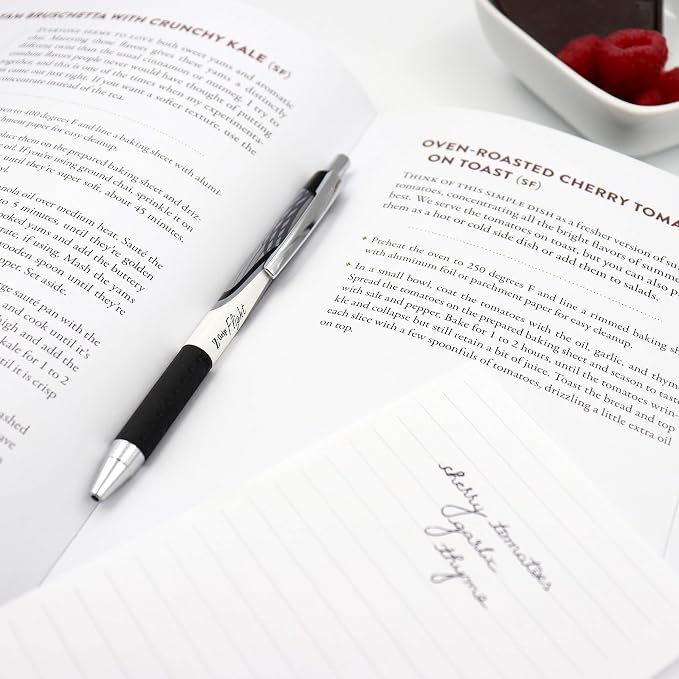 YAM BRUSCHETTA WITH CRUNCHY KALE (SF)
EVERYONE SEEMS TO LOVE both sweet yams and aromatic
chai. Marrying those flavors gives these yams a distinctly
different twist than the usual cinnamon or nutmeg. I try to
combine flavors people never would have thought of putting
and this is one of the times when my experimenta-
came out just right. If you want a softer texture, use the
concentrate instead of the tea.
to 400 degrees F and line a baking sheet with alumi-
chment paper for easy cleanup.
place them on the prepared baking sheet and driz-
oil. If you're using ground chai, sprinkle it on
until they're super soft, about 45 minutes,
nola oil over medium heat. Sauté the
to 5 minutes, until they're golden
ooked yams and add the buttery
rate, if using. Mash the yams
ooden spoon until they're
pper. Set aside.
rge sauté pan with the
and cook until it's
igh and add the
kale for 1 to 2
til it is crisp
ashed
ave
ns.
Z-Grip Flight
OVEN-ROASTED CHERRY TOMA
ON TOAST (SF)
THINK OF THIS SIMPLE DISH as a fresher version of su
tomatoes, concentrating all the bright flavors of summe
best. We serve the tomatoes on toast, but you can also p
them as a hot or cold side dish or add them to salads.
Preheat the oven to 250 degrees F and line a rimmed baking sh
with aluminum foil or parchment paper for easy cleanup.
In a small bowl, coat the tomatoes with the oil, garlic, and thym
Spread the tomatoes on the prepared baking sheet and season to taste
with salt and pepper. Bake for 1 to 2 hours, until the tomatoes wrin-
kle and collapse but still retain a bit of juice. Toast the bread and top
each slice with a few spoonfuls of tomatoes, drizzling a little extra oil
on top.
cherry tomatoes
garlic
thyme